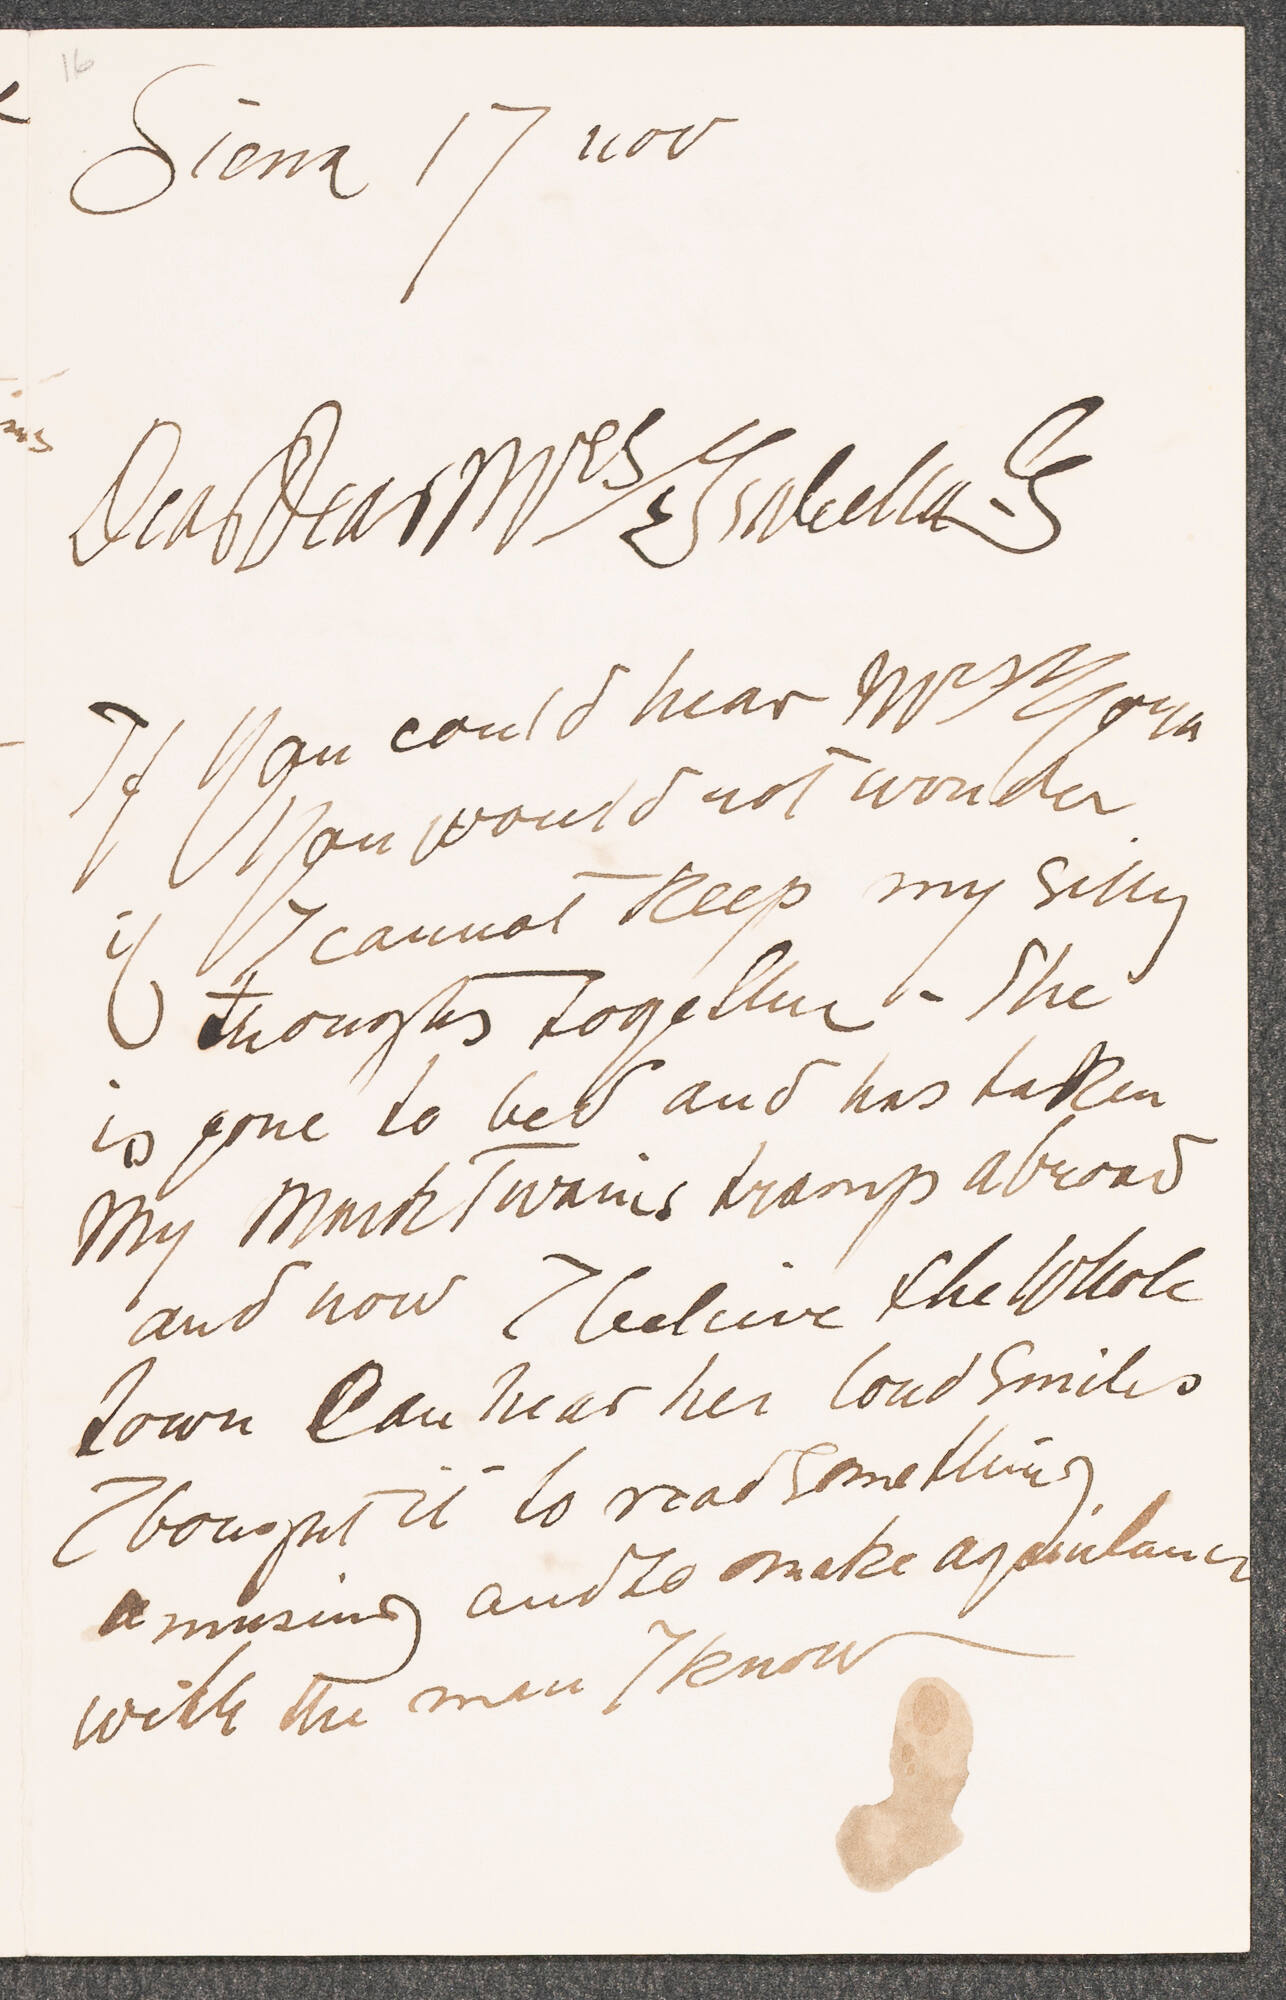 16
Siena 17 nov
Dear Dear Mrs Isabella
If You could hear Mrs
You would not wonder
if I cannot keep my silly
thoughts together - She
is gone to bed and has taken
My Mark Twains tramp abroad
and now I beleive the Whole
town Can hear her loud smiles
I bought it to read something
amusing and to make aquaintance
with the man I know